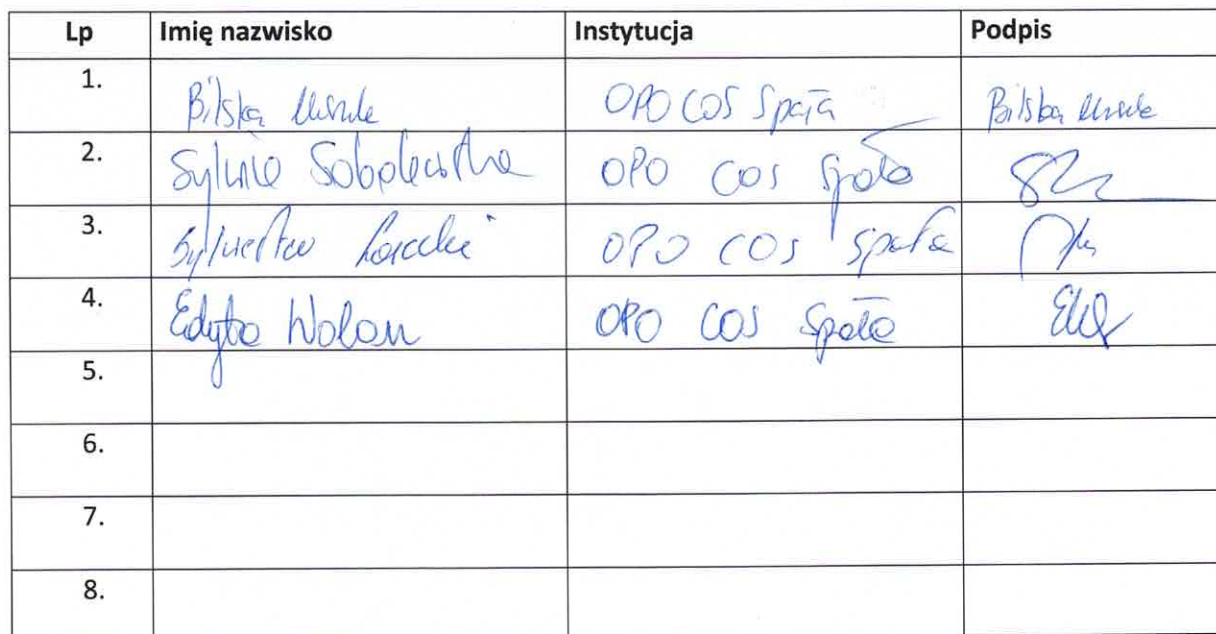 Lp Imię nazwisko Instytucja Podpis
1. Bilska Urszula OPO COS Spała Bilska Urszula
2. Sylwia Sobolewska OPO COS Spała
3. Sylwester OPO COS Spała
4. Edyta Wolan OPO COS Spała
5.
6.
7.
8.